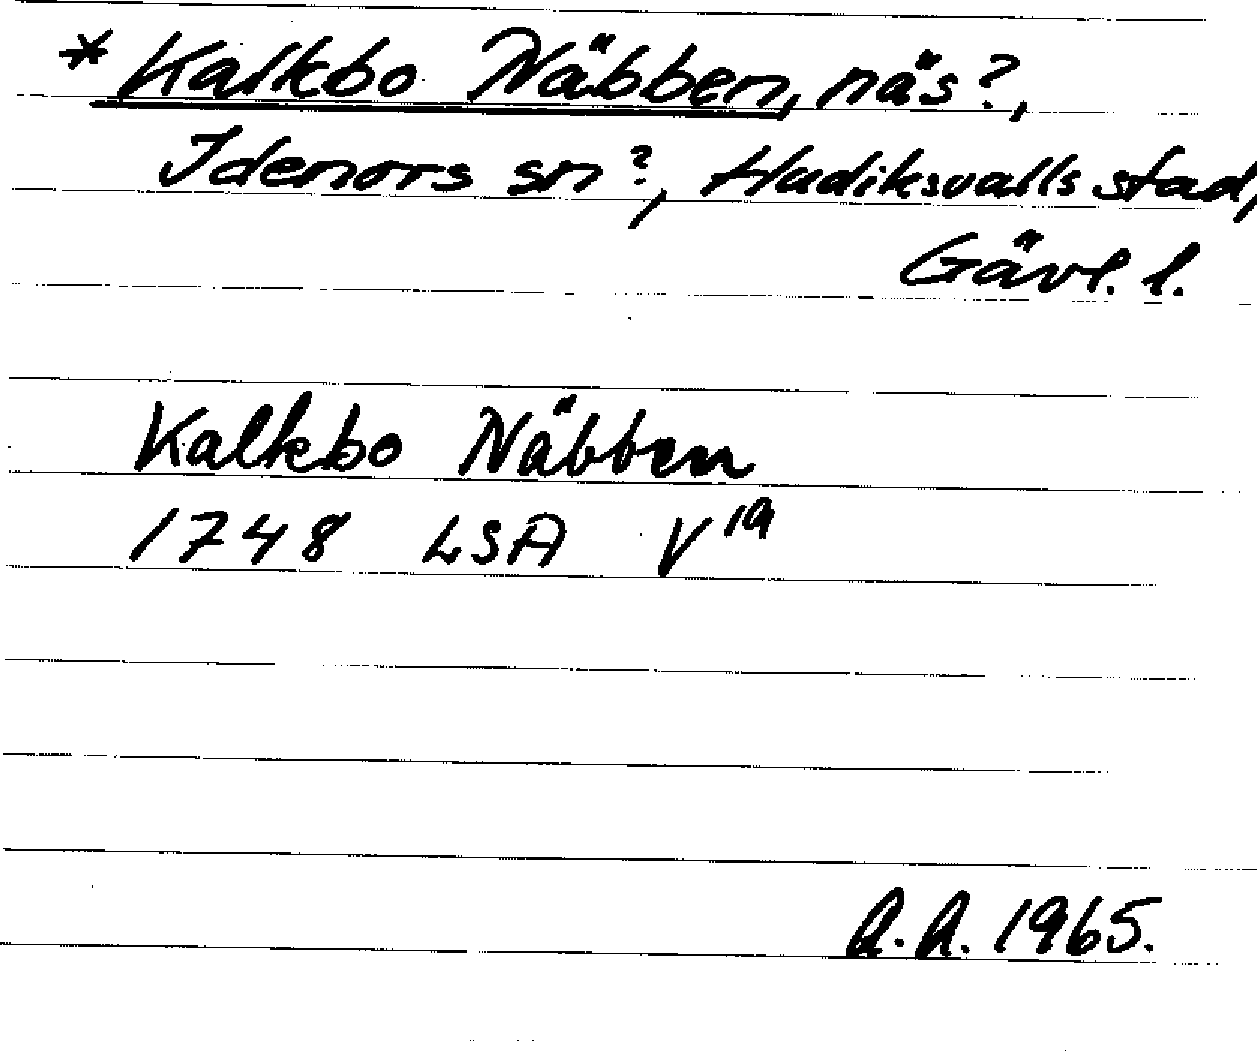 * Kalkbo Näbben, näs?,
Idenors sn?, Hudiksvalls stad,
Gävl. l.
Kalkbo Näbben
1748 LSA V 19
A.A. 1965.